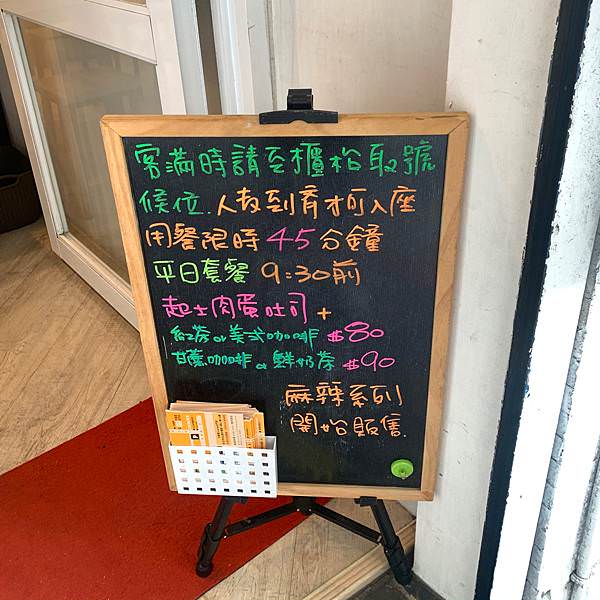 客滿時請至櫃枱取號
候位.人數到齊才可入座
用餐限時45分鐘
平日套餐 9:30前
起士肉蛋吐司+
紅茶or美式咖啡 $80
甘蔗咖啡or鮮奶茶 $90
麻辣系列
開始販售.